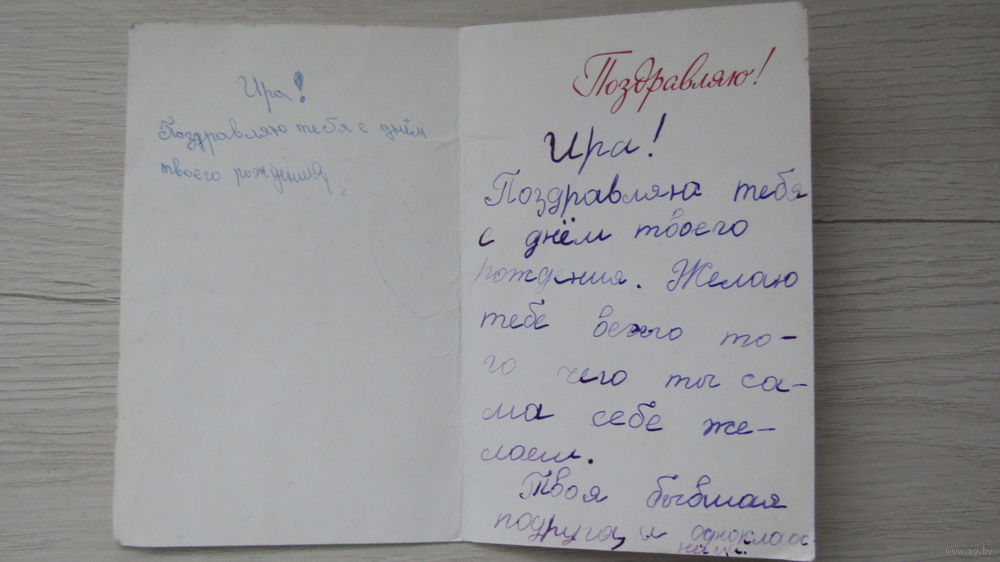 Ира!
Поздравляю тебя с днём
твоего рождения,
Поздравляю!
Ира!
Поздравляю тебя
с днём твоего
рождения. Желаю
тебе всего то-
го чего ты са-
ма себе же-
лаеш.
Твоя бывшая
подруга, и однокласс
www.ay.by